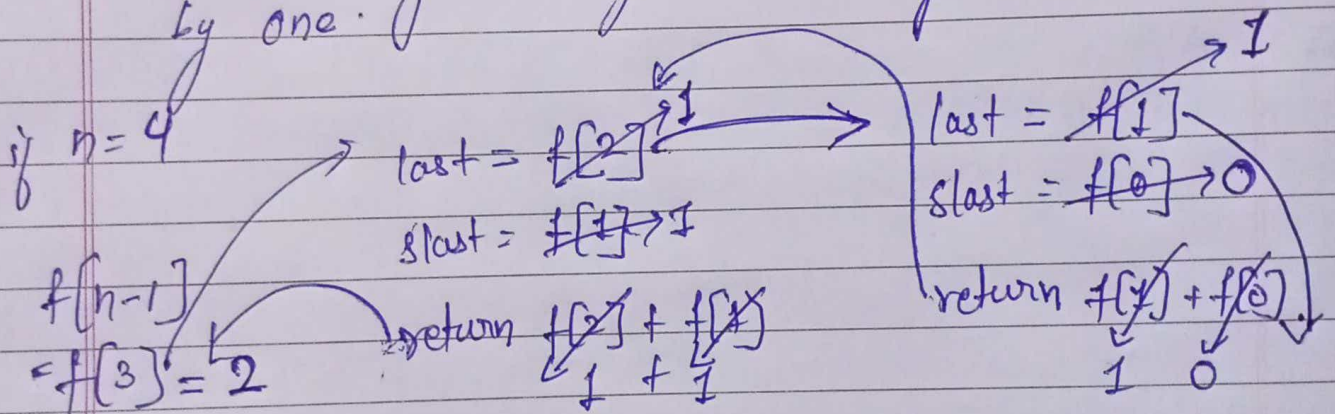 by one.
if n = 4
f[n-1]
= f[3] = 2
last = f[2] → 1
slast = f[1] → 1
return f[2] + f[1]
1 + 1
last = f[1] → 1
slast = f[0] → 0
return f[1] + f[0]
1 0